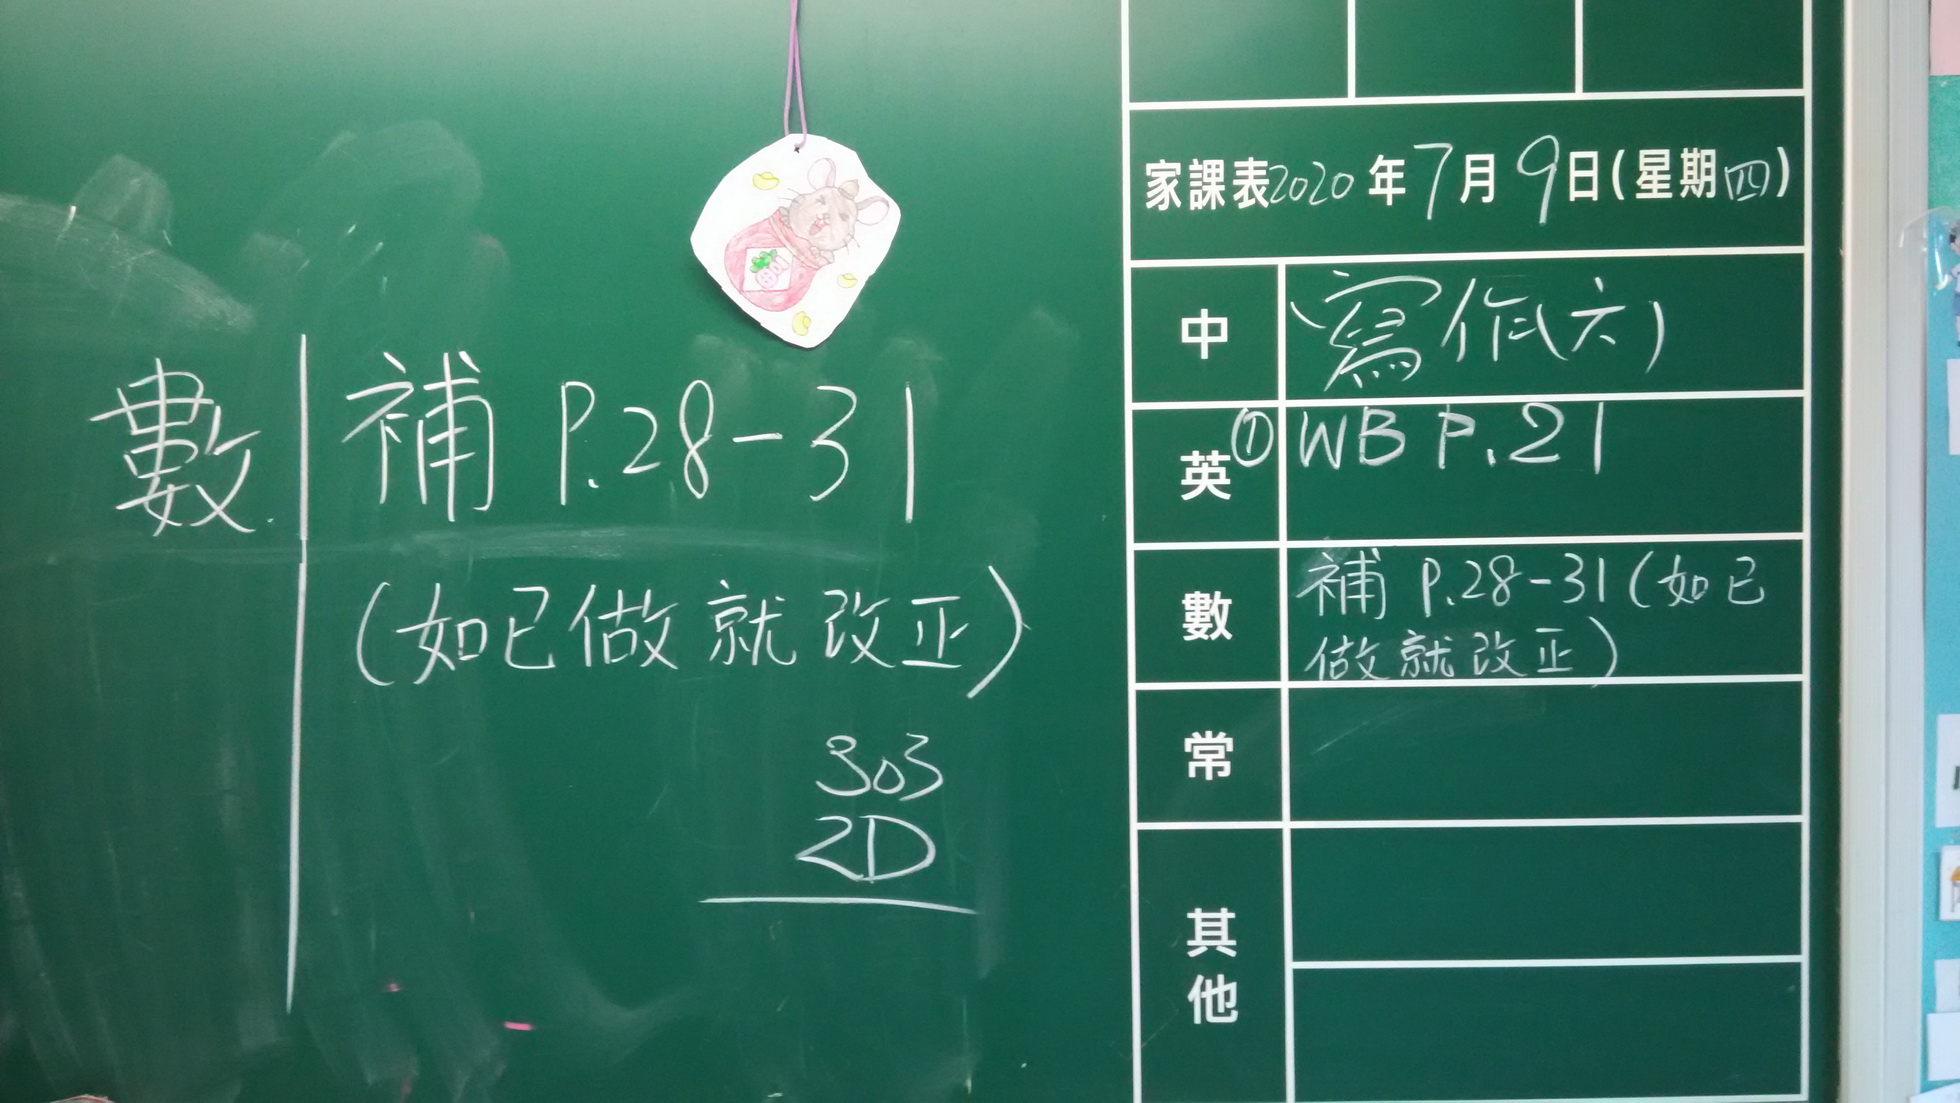 數 補 P.28-31
(如已做就改正)
303
2D
家課表2020年7月9日(星期四)
中 寫作(六)
英 ① WB P.21
數 補 P.28-31(如已
做就改正)
常
其他